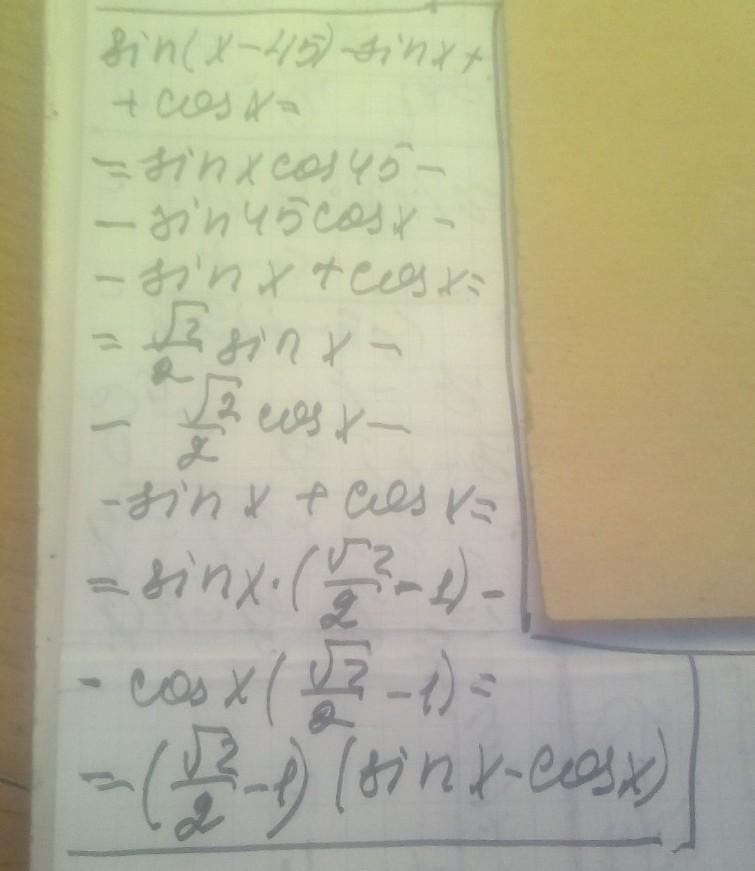 sin(x-45)-sinx+
+cosx=
=sinxcos45-
-sin45cosx-
-sinx+cosx=
=√2/2 sinx-
-√2/2 cosx-
-sinx+cosx=
=sinx·(√2/2-1)-
-cosx(√2/2-1)=
=(√2/2-1)(sinx-cosx)